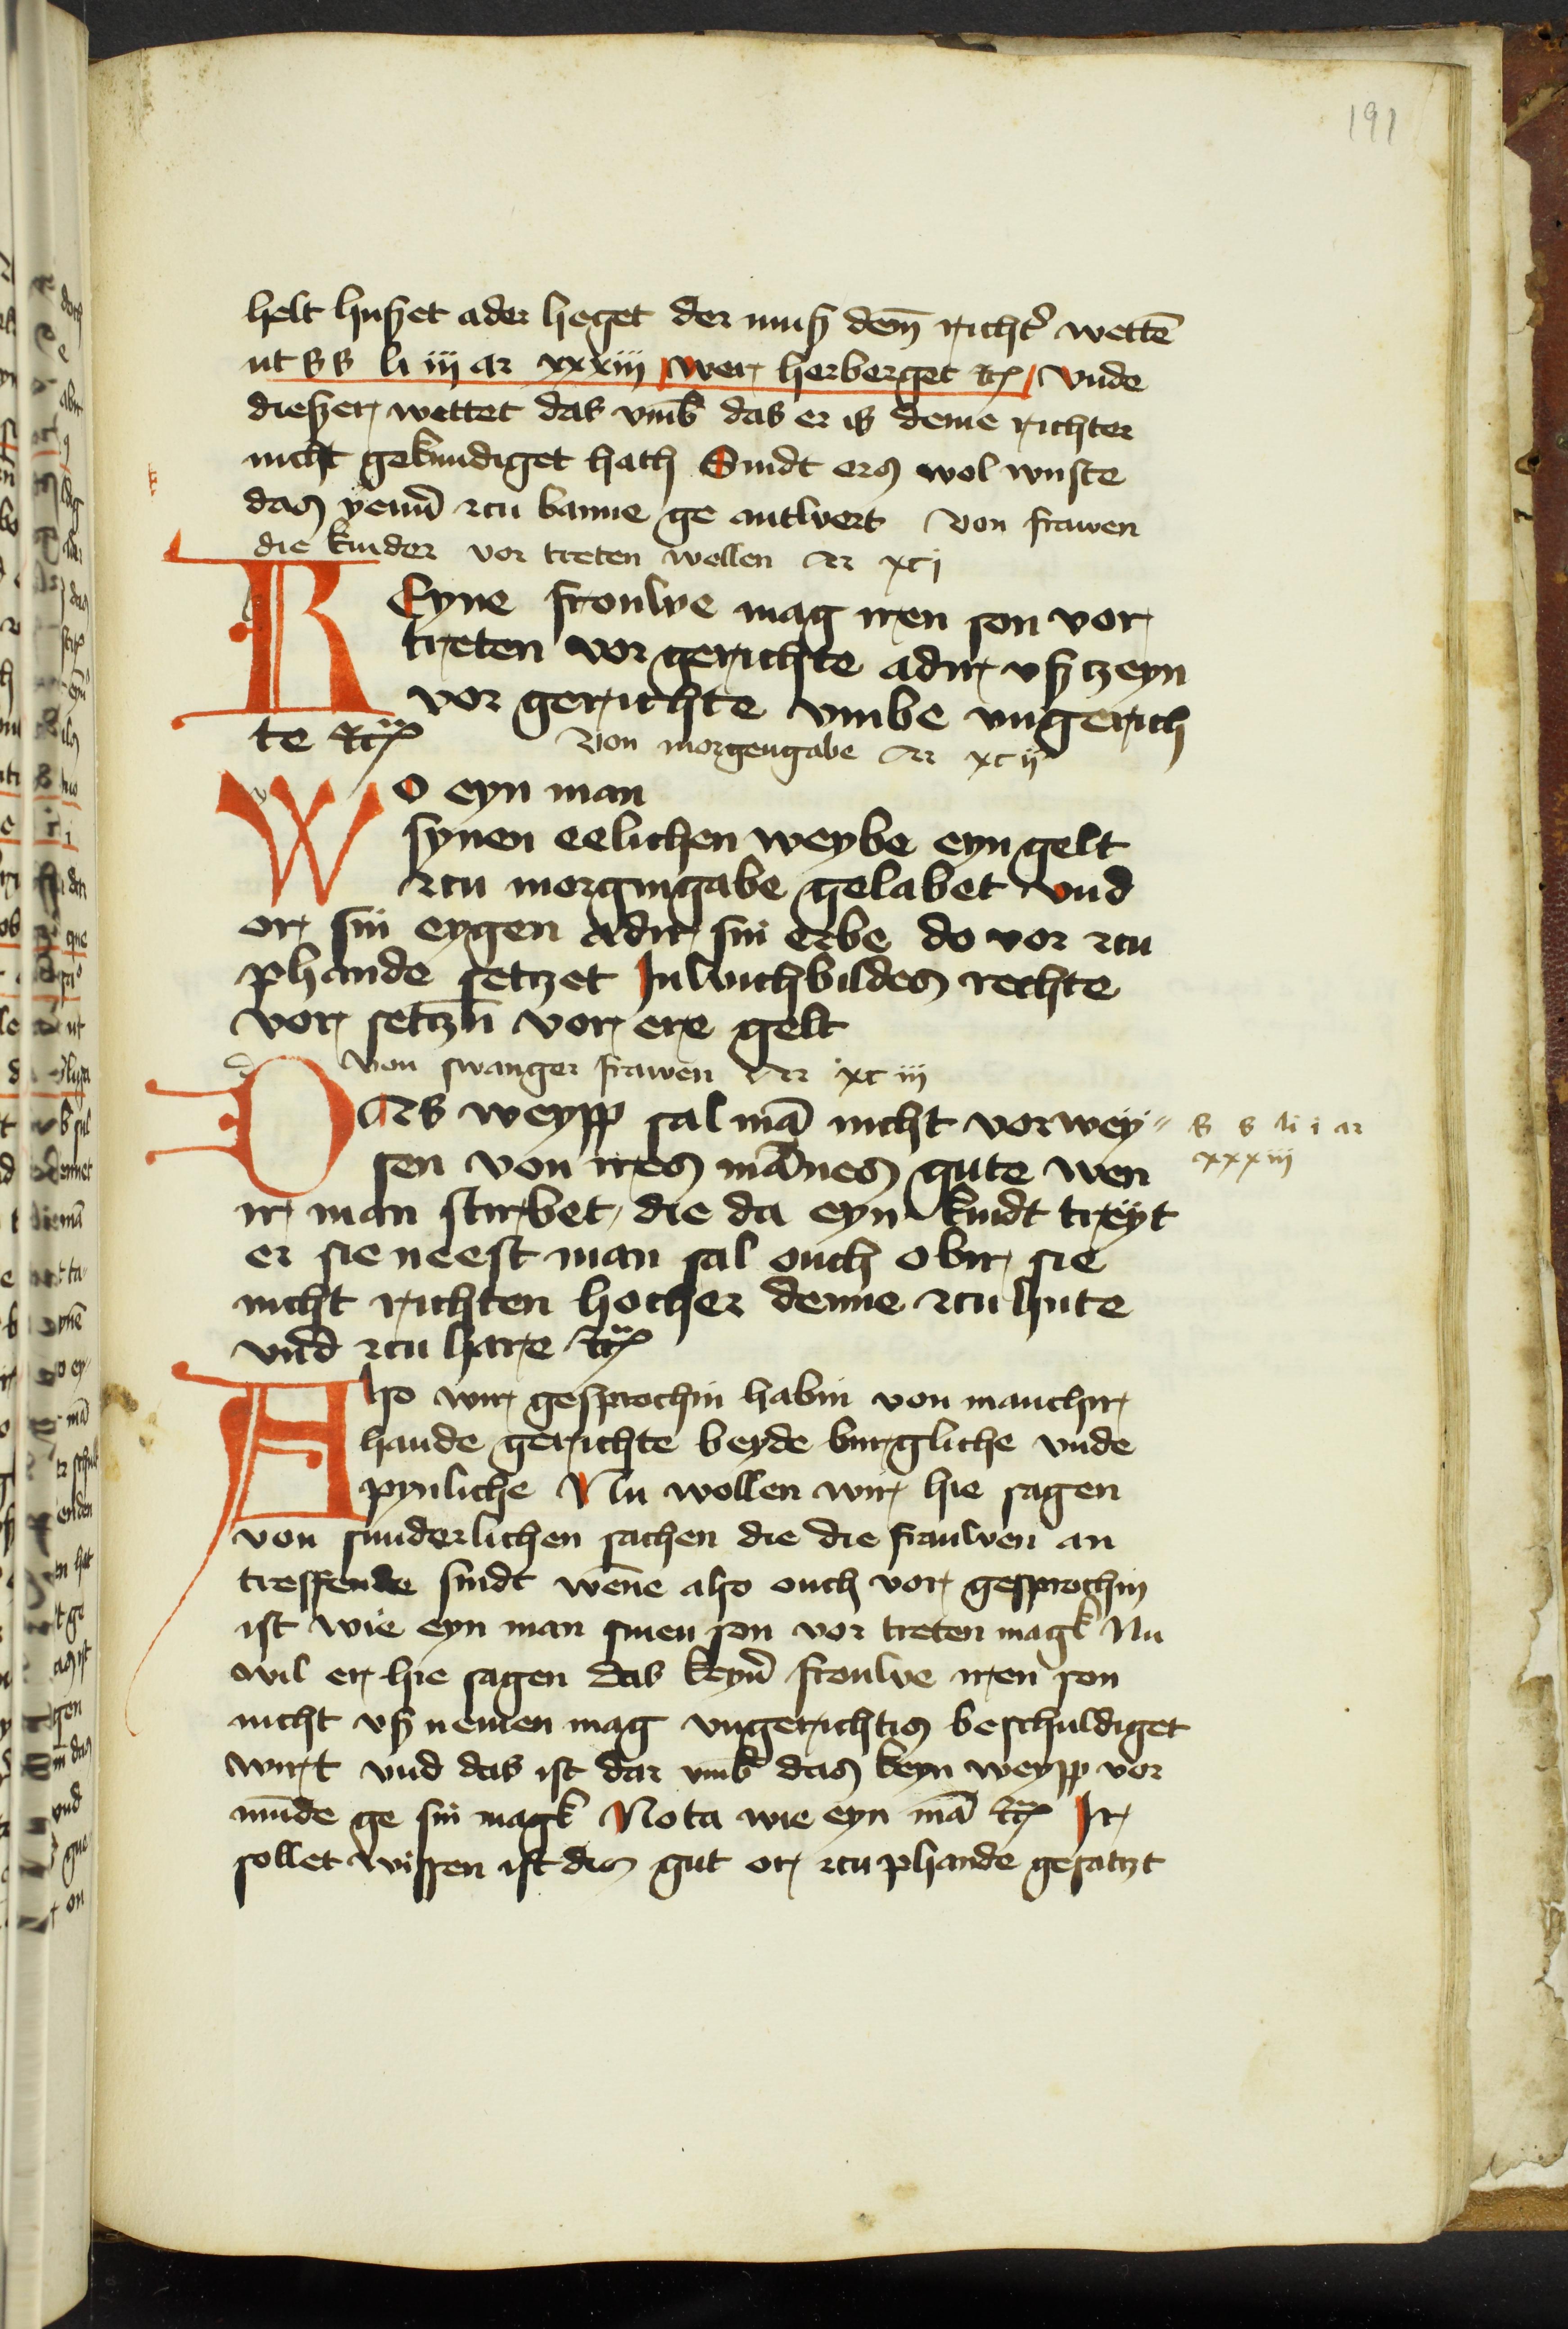 191
helt huszet ader heget der musz dem̄ richt᷑ wettē
ut ss li iij ar xxxiij wer herberget ꝛc vnde
dieszer wettet das vmb̄ das er is deme richter
nicht gekundiget hath Sindt ers wol wuste
das yenn̄ zcu banne ge antwert von frawen
die kinder vor treten wollen ar xcj
Keyne frouwe mag iren son vor
treten vor gerichte adir vsz tzeyn
vor gerichte vmbe vngerich
te ꝛc von morgengabe ar xcij
Wo eyn man
synen eelichen weybe eyn gelt
zcu morgingabe gelabet vnd
or sin eygen adir sin erbe do vor zcu
phande setczet In wichbildes rechte
vor setczn̄ vor ere gelt
von swanger frawen ar xciij
Das weypp sal mā nicht vorwey⸗
sen von ires mānes gute wen
ir man stirbet die da eyn kindt treyt
er sie neest man sal ouch obir sie
nicht richten hocher denne zcu hute
vnd zcu hare ꝛc
s s li i ar
xxxiij
Also wir gesprochin habin von manchir
hande gerichte beyde burgliche vnde
pynliche Nu wollen wir hie sagen
von sunderlichen sachen die die frauwen an
treffende sindt wēne also ouch vor gesprochin
ist wie eyn man sinen son vor treten magk Nu
wil er hie sagen das keyn̄ frouwe iren son
nicht vsz nemen mag vngerichtis beschuldiget
wirt vnd das ist dar vmb̄ das keyn weypp vor
mūde ge sin magk Nota wie eyn mā ꝛc Ir
sollet wissen ist dis gut or zcu phande gesatzt